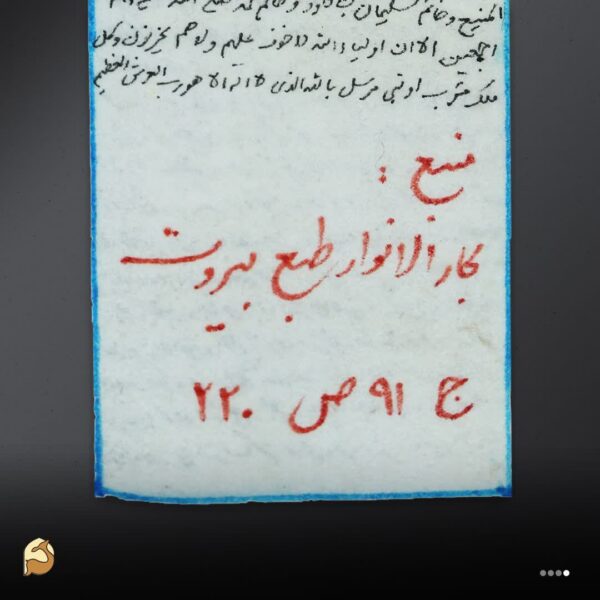 المنیع و خاتم سلیمان بن داود و خاتم
اجمعین الا ان اولیاء الله لا خوف علیهم و لا هم یحزنون و کل
ملک مقرب او نبی مرسل بالله الذی لا اله الا هو رب العرش العظیم
منبع :
بحار الانوار طبع بیروت
ج ۹۱ ص ۲۲۰